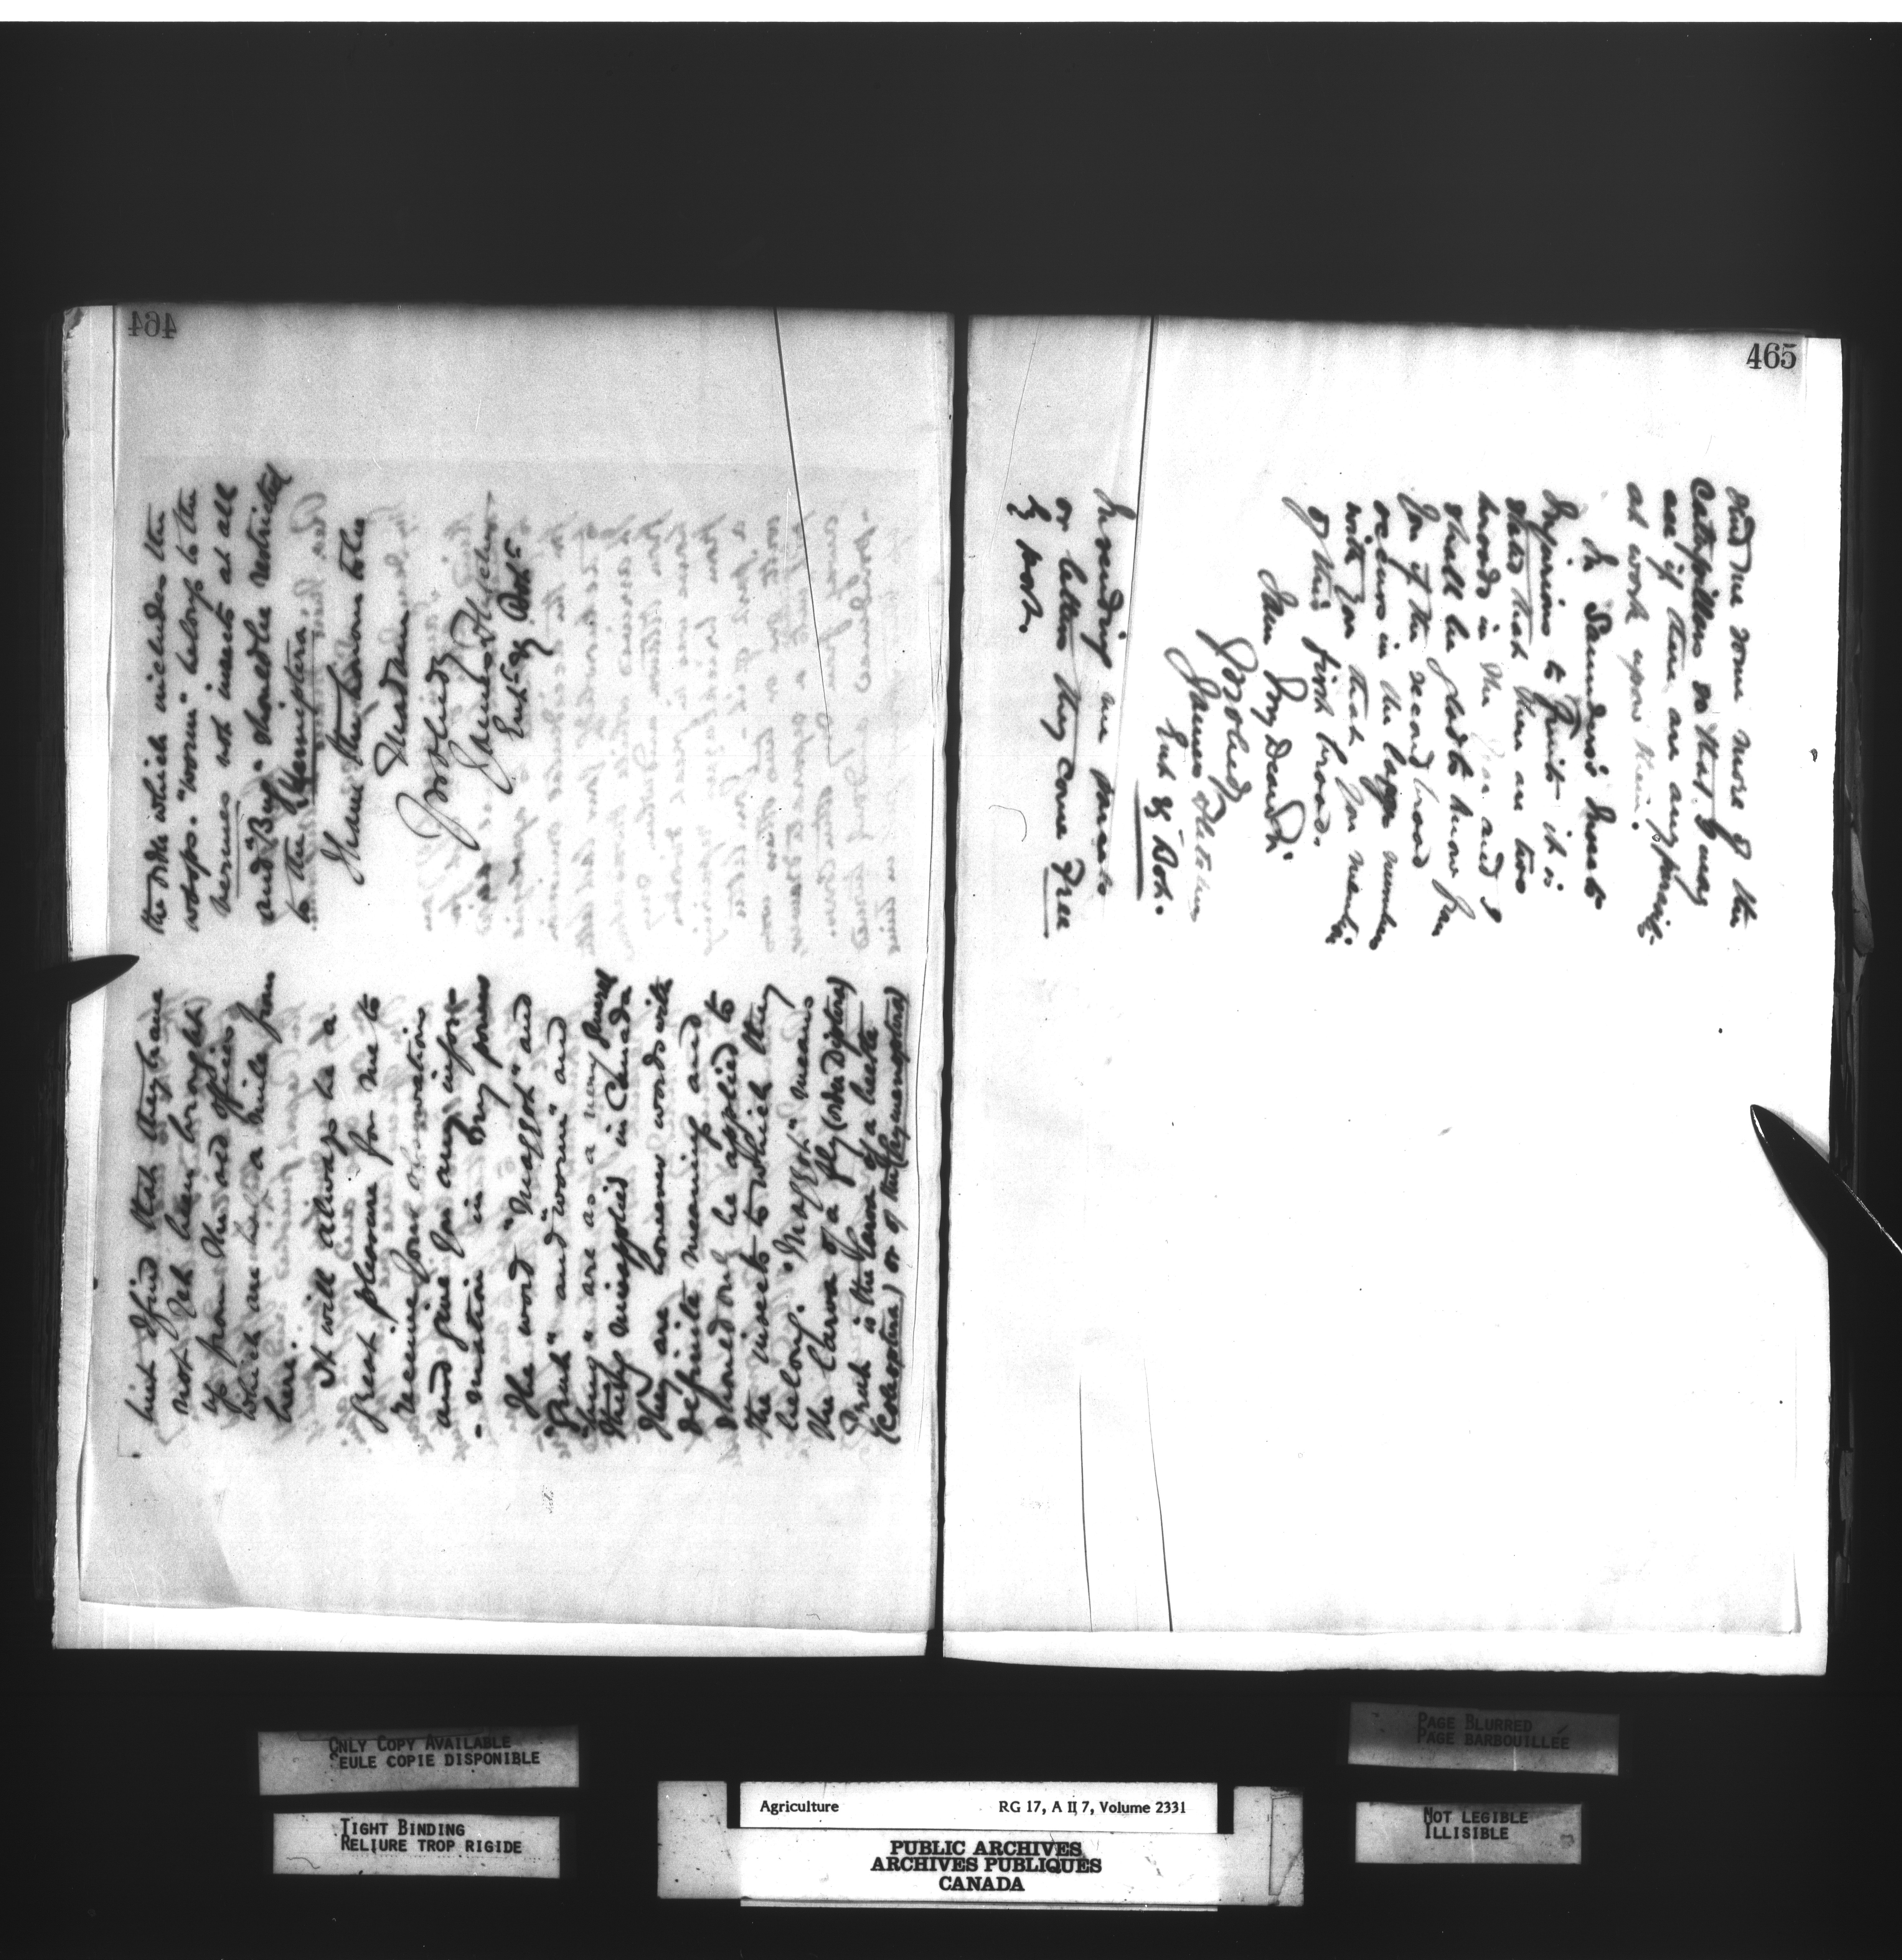 464
but I find that they have
not yet been brought
up from the old offices
which are half a mile from
here.
It will always be a
great pleasure for me to
receive your observations
and give you any infor-
-mation in my power
The word "Maggot" and
"Grub" and "worm" and
"bug" are as a very general
thing misapplied in Canada
They are however words with
definite meaning and
should only be applied to
the insects to which they
belong. "Maggot" means
the larva of a fly (order Diptera)
Grub is the larva of a beetle
(Coleoptera) or of the (Hymenoptera)
the order which includes the
wasps. "worm" belongs to the
vermes not insects at all
and "Bug" should be restricted
to the Hemiptera.
I have the honour to be
Madam
Yrs obliged
James Fletcher
Ent. & Bot.
465
send me some more of the
Caterpillars so that I may
see if there are any parasites
at work upon them.
In Saunders's Insects
Injurious to Fruits it is
stated that there are two
broods in the year and I
shall be glad to know from
you if the second brood
occurs in the large numbers
with you that you mention
of this first brood.
I am My Dear Sir
Yrs obliged
James Fletcher
Ent. & Bot.
In sending me insects
or letters they come Free
by post.
ONLY COPY AVAILABLE
SEULE COPIE DISPONIBLE
TIGHT BINDING
RELIURE TROP RIGIDE
Agriculture RG 17, A II 7, Volume 2331
PUBLIC ARCHIVES
ARCHIVES PUBLIQUES
CANADA
PAGE BLURRED
PAGE BARBOUILLÉE
NOT LEGIBLE
ILLISIBLE